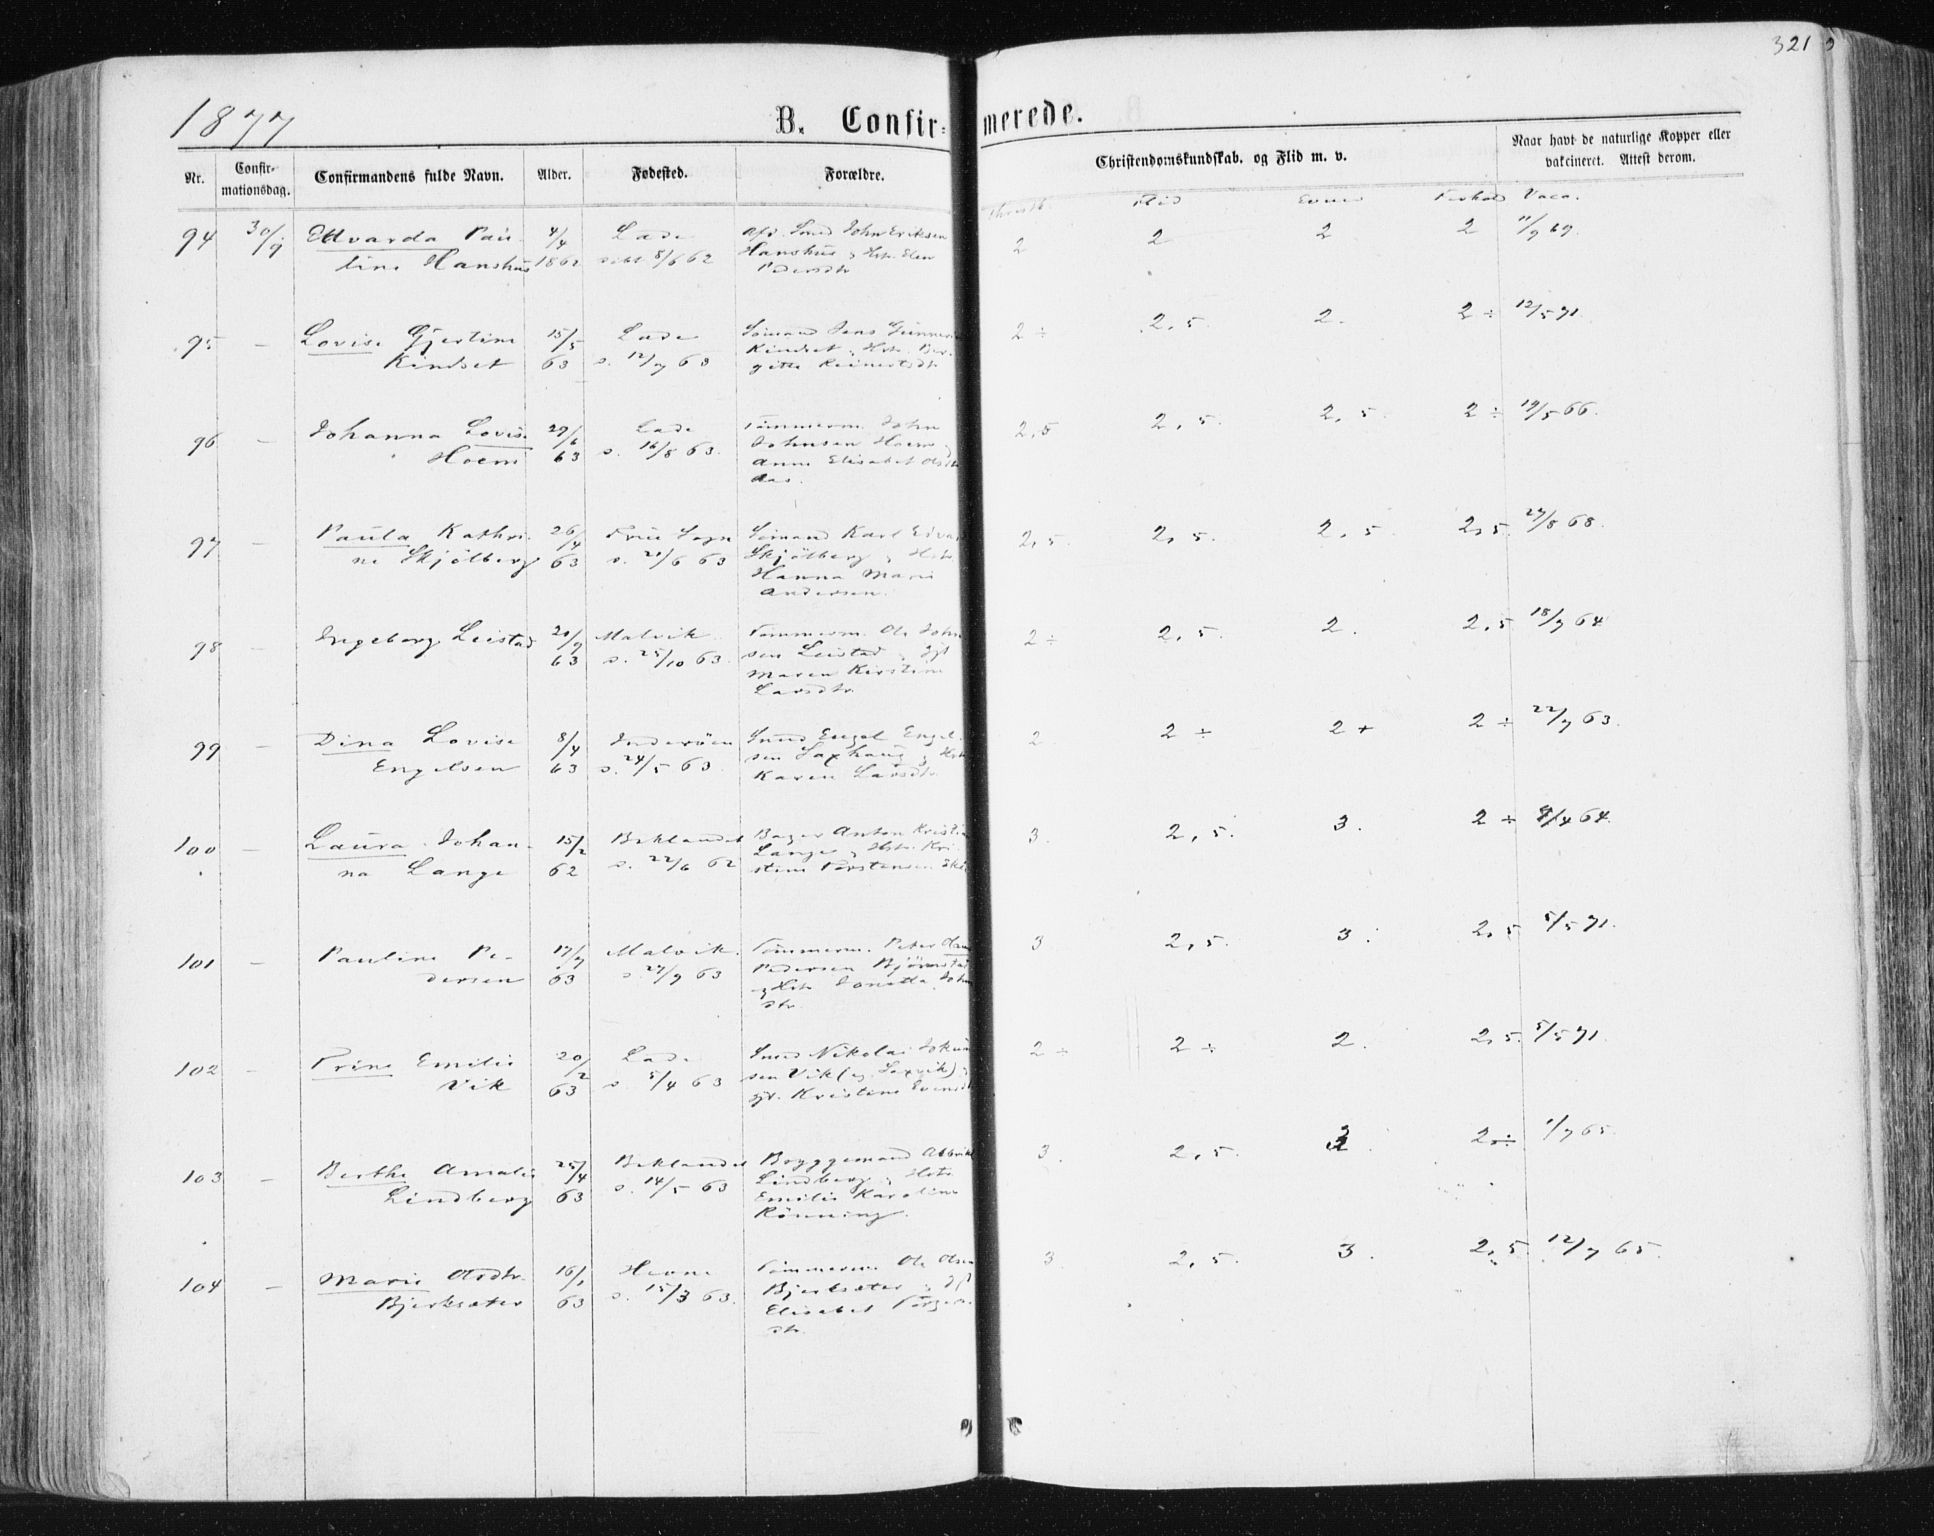 321
1877
B. Confir- merede.
Nr. Confir-mationsdag. Confirmandens fulde Navn. Alder. Fødested. Forældre. Christendomskundskab. og Flid m. v. Naar havt de naturlige Kopper eller vakcineret. Attest derom.
Flid Evner Forhold Vacc.
94 30/9 Edvarda Pau- 4/4 Lade Afd. Smed John Eriksen 2 2 2 2 11/9 69.
line Hanshus 1862 debt 8/6 62 Hanshus, Hstr. Elen
Pedersdtr
95 — Lovise Gjertine 15/5 Lade Sømand Jens 2 ÷ 2,5. 2. 2 ÷ 12/5 71.
Kindset 63 d. 12/7 63 Kindset, Hstr. Ber-
gitte Reinertsdtr
96 — Johanna Lovise 29/6 Lade Tømmerm. John 2,5 2,5. 2,5 2 ÷ 19/5 66.
Hoem 63 d. 16/8 63. Johnsen Hoem
Anne Elisabet Olsdtr
Aas.
97 — Paula Kathri- 26/4 Frue Sogn Sømand Karl Edvard 2,5. 2,5. 2,5 2,5 27/8 68.
ne Skjölberg 63 d. 21/6 63 Skjölberg, Hstr.
Hanna Marie
Andersen.
98 — Ingeborg Leistad 21/9 Malvik. Tømmerm. Ole John- 2 ÷ 2,5. 2. 2,5 18/7 64
63 d. 25/10 63. sen Leistad, Gjt
Maren Kirstine
Larsdtr.
99 — Dina Lovise 8/4 Inderöen Smed Engel Engel- 2 2 ÷ 2 + 2 ÷ 22/7 63.
Engelsen 63 d. 24/5 63. sen Saxhaug, Hstr
Karen Larsdtr
100 — Laura Johan- 15/2 Baklandet Bager Anton Kristian 3. 2,5. 3. 2 ÷ 8/4 64.
na Lange 62 d. 22/6 62 Lange, Hstr. Kri-
stine Torstensen
101 — Pauline Pe- 17/7 Malvik. Tømmerm. Peter 3 2,5. 3. 2,5 5/5 71.
dersen 63 d. 27/9 63 Pedersen Björnstad
, Hstr Jonetta John
dtr
102 — Trine Emilie 20/2 Lade Smed Nikolai 2 ÷ 2 ÷ 2. 2,5. 5/5 71.
Vik 63 d. 5/4 63 sen Vik (eg. Saxvik),
gt. Kristine Evensdtr
103 — Berthe Amalie 25/4 Baklandet Bryggemand 3. 2,5. 3 2 ÷ 1/7 65.
Lindberg 63 d. 14/5 63 Lindberg, Hstr
Emilie Karoline
Rönning.
104 — Marie Olsdtr. 16/1 Hevne Tømmerm. Ole Olsen 3. 2,5. 3. 2,5 12/7 65.
Bjerksæter 63 d. 15/3 63. Bjerksæter, Gjt
Elisabet
dtr.